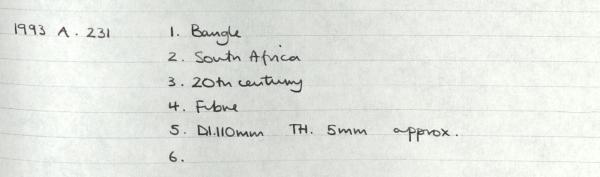 1993 A. 231 1. Bangle
2. South Africa
3. 20th century
4. Fibre
5. DI.110mm TH. 5mm approx.
6.